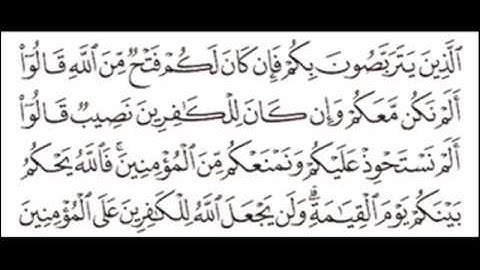 ٱلَّذِينَ يَتَرَبَّصُونَ بِكُمْ فَإِن كَانَ لَكُمْ فَتْحٌ مِّنَ ٱللَّهِ قَالُوٓا۟
أَلَمْ نَكُن مَّعَكُمْ وَإِن كَانَ لِلْكَٰفِرِينَ نَصِيبٌ قَالُوٓا۟
أَلَمْ نَسْتَحْوِذْ عَلَيْكُمْ وَنَمْنَعْكُم مِّنَ ٱلْمُؤْمِنِينَ ۚ فَٱللَّهُ يَحْكُمُ
بَيْنَكُمْ يَوْمَ ٱلْقِيَٰمَةِ ۗ وَلَن يَجْعَلَ ٱللَّهُ لِلْكَٰفِرِينَ عَلَى ٱلْمُؤْمِنِينَ